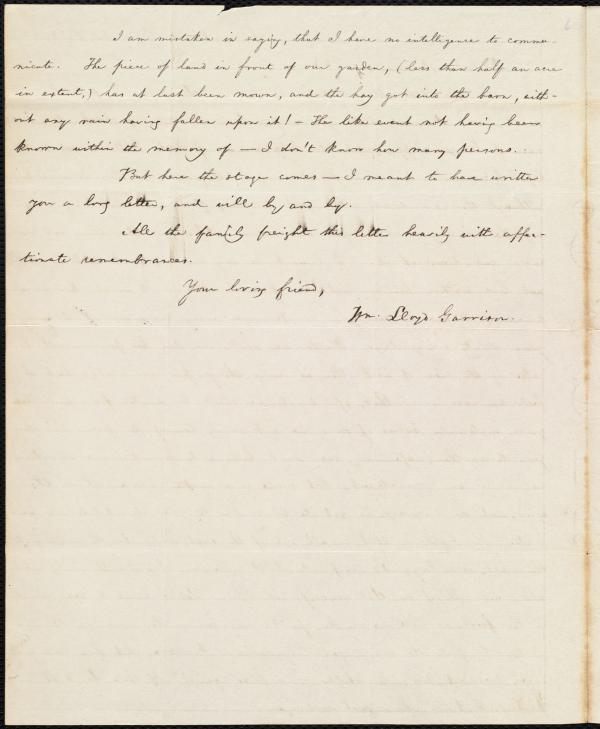 I am mistaken in saying, that I have no intelligence to commu-
nicate. The piece of land in front of our garden, (less than half an acre
in extent,) has at last been mown, and the hay got into the barn, with-
out any rain having fallen upon it! — The like event not having been
known within the memory of — I don't know how many persons.
But here the stage comes — I meant to have written
you a long letter, and will by and by.
All the family freight this letter heavily with affec-
tionate remembrances.
Your loving friend,
Wm. Lloyd Garrison.